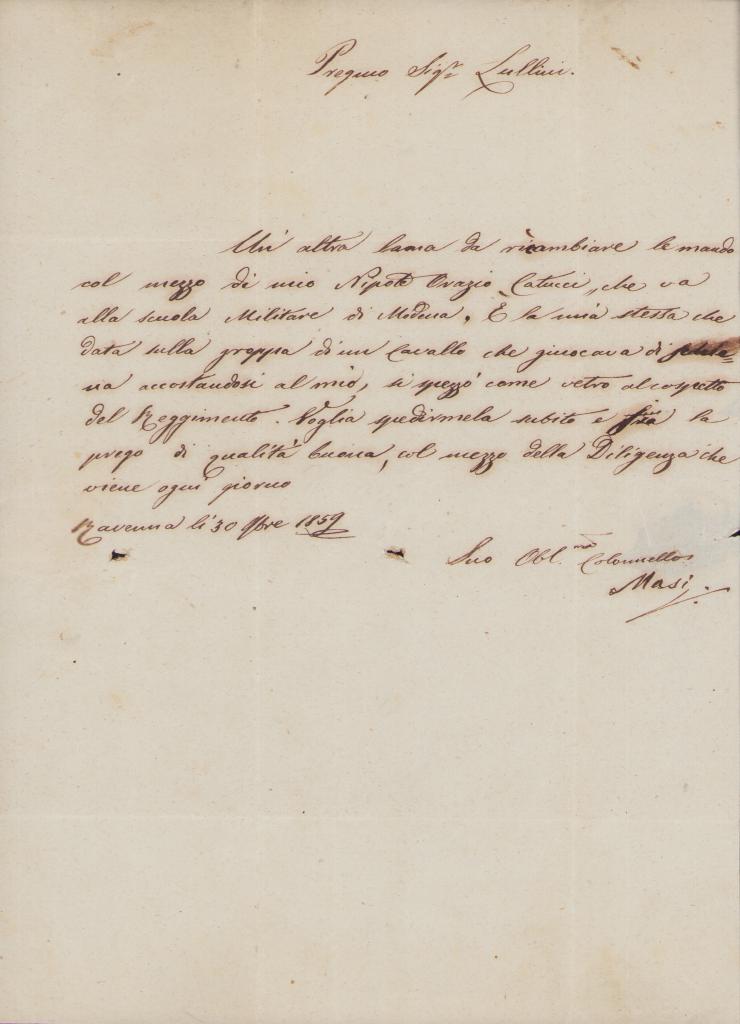 Pregmo Sigre Lullini.
Un' altra lama da ricambiare le mando
col mezzo di mio Nipote Orazio Catucci, che va
alla scuola Militare di Modena. È la mia stessa che
data sulla groppa di un Cavallo che giuocava di schie=
na accostandosi al mio, si spezzò come vetro al cospetto
del Reggimento. Voglia spedirmela subito e sia la
prego di qualità buona, col mezzo della Diligenza che
viene ogni giorno
Ravenna li 30 9bre 1859
Suo Obl.mo Colonnello
Masi.